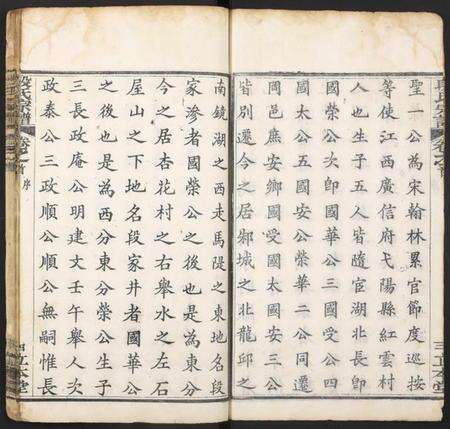 聖一公為宋翰林累官節度巡按
等使江西廣信府弋陽縣紅雲村
人也生子五人皆隨官湖北長卽
國榮公次卽國華公三國受公四
國太公五國安公榮華二公同遷
邑安鄉國受國太國安三公
皆別遷今之居城之北龍邱之
三立本堂
南鏡湖之西走馬隄之東地名段
家滲者國榮公之後也是為東分
今之居杏花村之右舉水之左石
屋山之下地名段家井者國華公
之後也是為西分東分榮公生子
三長政庵公明建文壬午舉人次
政泰公三政順公順公無嗣惟長
段氏宗譜 卷之首 序 四 立本堂